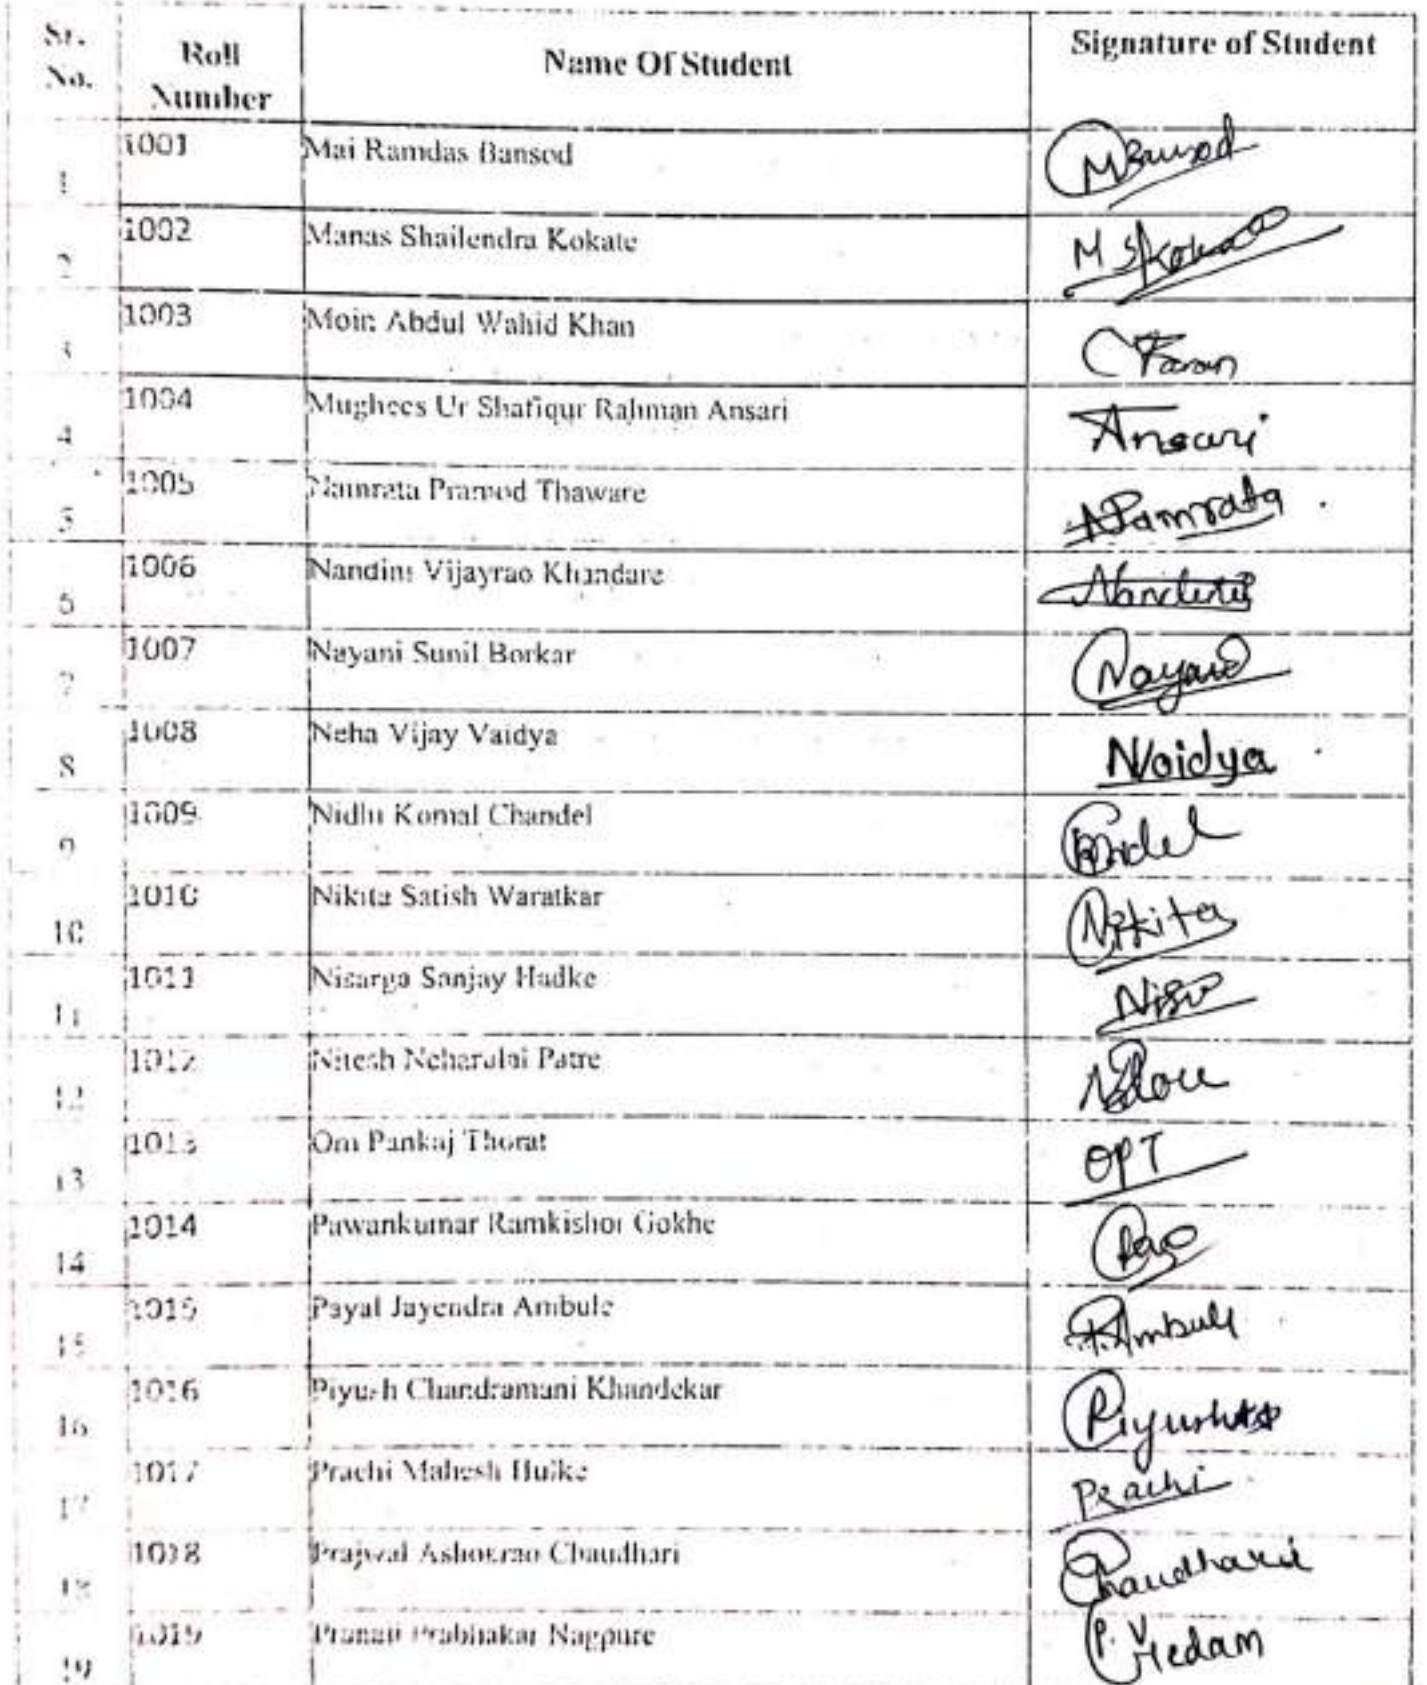 Sr. No. Roll Number Name Of Student Signature of Student
1 1001 Mai Ramdas Bansod MBansod
2 1002 Manas Shailendra Kokate M S Kokate
3 1003 Moin Abdul Wahid Khan
4 1004 Mughees Ur Shafiqur Rahman Ansari Ansari
5 1005 Namrata Pramod Thaware Namrata
6 1006 Nandini Vijayrao Khandare Nandini
7 1007 Nayani Sunil Borkar Nayani
8 1008 Neha Vijay Vaidya NVaidya
9 1009 Nidhi Komal Chandel
10 1010 Nikita Satish Waratkar Nikita
11 1011 Nisarga Sanjay Hadke
12 1012 Nitesh Patre
13 1013 Om Pankaj Thorat OPT
14 1014 Pawankumar Ramkishor Gokhe
15 1015 Payal Jayendra Ambule P.Ambule
16 1016 Piyush Chandramani Khandekar Piyush
17 1017 Prachi Mahesh Hulke Prachi
18 1018 Prajwal Ashokrao Chaudhari Chaudhari
19 1019 Prabhakar Nagpure